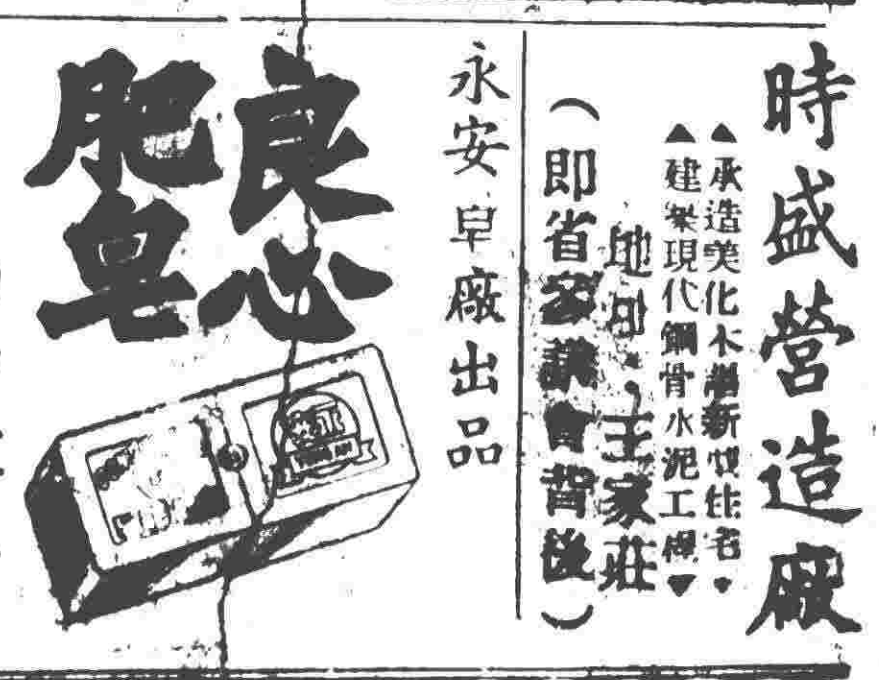 時盛營造廠
▲承造美化木器新型住宅▼
▲建築現代鋼骨水泥工程▼
地址：王家莊
（即省參議會背後）
永安皂廠出品
良心
肥皂